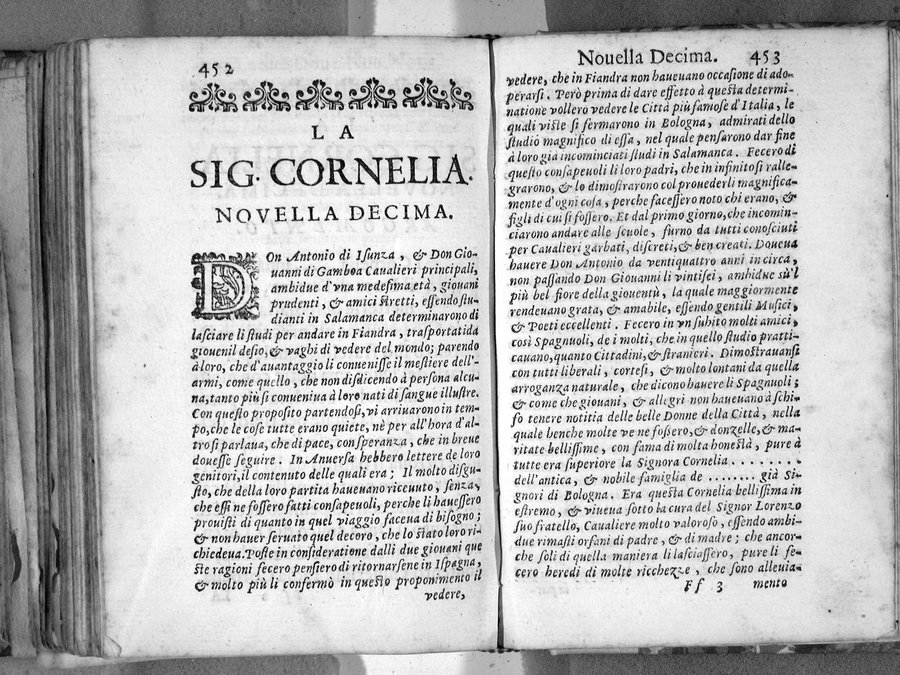 452
LA
SIG. CORNELIA.
NOVELLA DECIMA.
DOn Antonio di Isunza, & Don Gio-
uanni di Gamboa Caualieri principali,
ambidue d'vna medesima età, giouani
prudenti, & amici stretti, essendo stu-
dianti in Salamanca determinarono di
lasciare li studi per andare in Fiandra, trasportatida
giouenil desio, & vaghi di vedere del mondo; parendo
à loro, che d'auantaggio li conuenisse il mestiere dell'-
armi, come quello, che non disdicendo à persona alcu-
na, tanto più si conueniua à loro nati di sangue illustre.
Con questo proposito partendosi, vi arriuarono in tem-
po, che le cose tutte erano quiete, nè per all'hora d'al-
tro si parlaua, che di pace, con speranza, che in breue
douesse seguire. In Anuersa hebbero lettere de loro
genitori, il contenuto delle quali era; Il molto disgu-
sto, che della loro partita haueuano riceuuto, senza,
che essi ne fossero fatti consapeuoli, perche li hauessero
prouisti di quanto in quel viaggio faceua di bisogno;
& non hauer seruato quel decoro, che lo stato loro ri-
chiedeua. Poste in consideratione dalli due giouani que
ste ragioni fecero pensiero di ritornarsene in Ispagna,
& molto più li confermò in questo proponimento il
vedere,
Nouella Decima. 453
vedere, che in Fiandra non haueuano occasione di ado-
perarsi. Però prima di dare effetto à questa determi-
natione vollero vedere le Città più famose d'Italia, le
quali viste si fermarono in Bologna, admirati dello
studio magnifico di essa, nel quale pensarono dar fine
à loro già incominciati studi in Salamanca. Fecero di
questo consapeuoli li loro padri, che in infinito si ralle-
grarono, & lo dimostrarono col prouederli magnifica-
mente d'ogni cosa, perche facessero noto chi erano, &
figli di cui si fossero. Et dal primo giorno, che incomin-
ciarono andare alle scuole, furno da tutti conosciuti
per Caualieri garbati, discreti, & ben creati. Doueua
hauere Don Antonio da ventiquattro anni in circa,
non passando Don Giouanni li vintisei, ambidue sù'l
più bel fiore della giouentù, la quale maggiormente
rendeuano grata, & amabile, essendo gentili Musici,
& Poeti eccellenti. Fecero in vn subito molti amici,
così Spagnuoli, de i molti, che in quello studio pratti-
cauano, quanto Cittadini, & stranieri. Dimostrauansi
con tutti liberali, cortesi, & molto lontani da quella
arroganza naturale, che dicono hauere li Spagnuoli;
& come che giouani, & allegri non haueuano à schi-
fo tenere notitia delle belle Donne della Città, nella
quale benche molte ve ne fossero, & donzelle, & ma-
ritate bellissime, con fama di molta honestà, pure à
tutte era superiore la Signora Cornelia ........
dell'antica, & nobile famiglia de ........ già Si-
gnori di Bologna. Era questa Cornelia bellissima in
estremo, & viueua sotto la cura del Signor Lorenzo
suo fratello, Caualiere molto valoroso, essendo ambi-
due rimasti orfani di padre, & di madre; che ancor-
che soli di quella maniera li lasciassero, pure li fe-
cero heredi di molte ricchezze, che sono alleuia-
Ff 3 mento